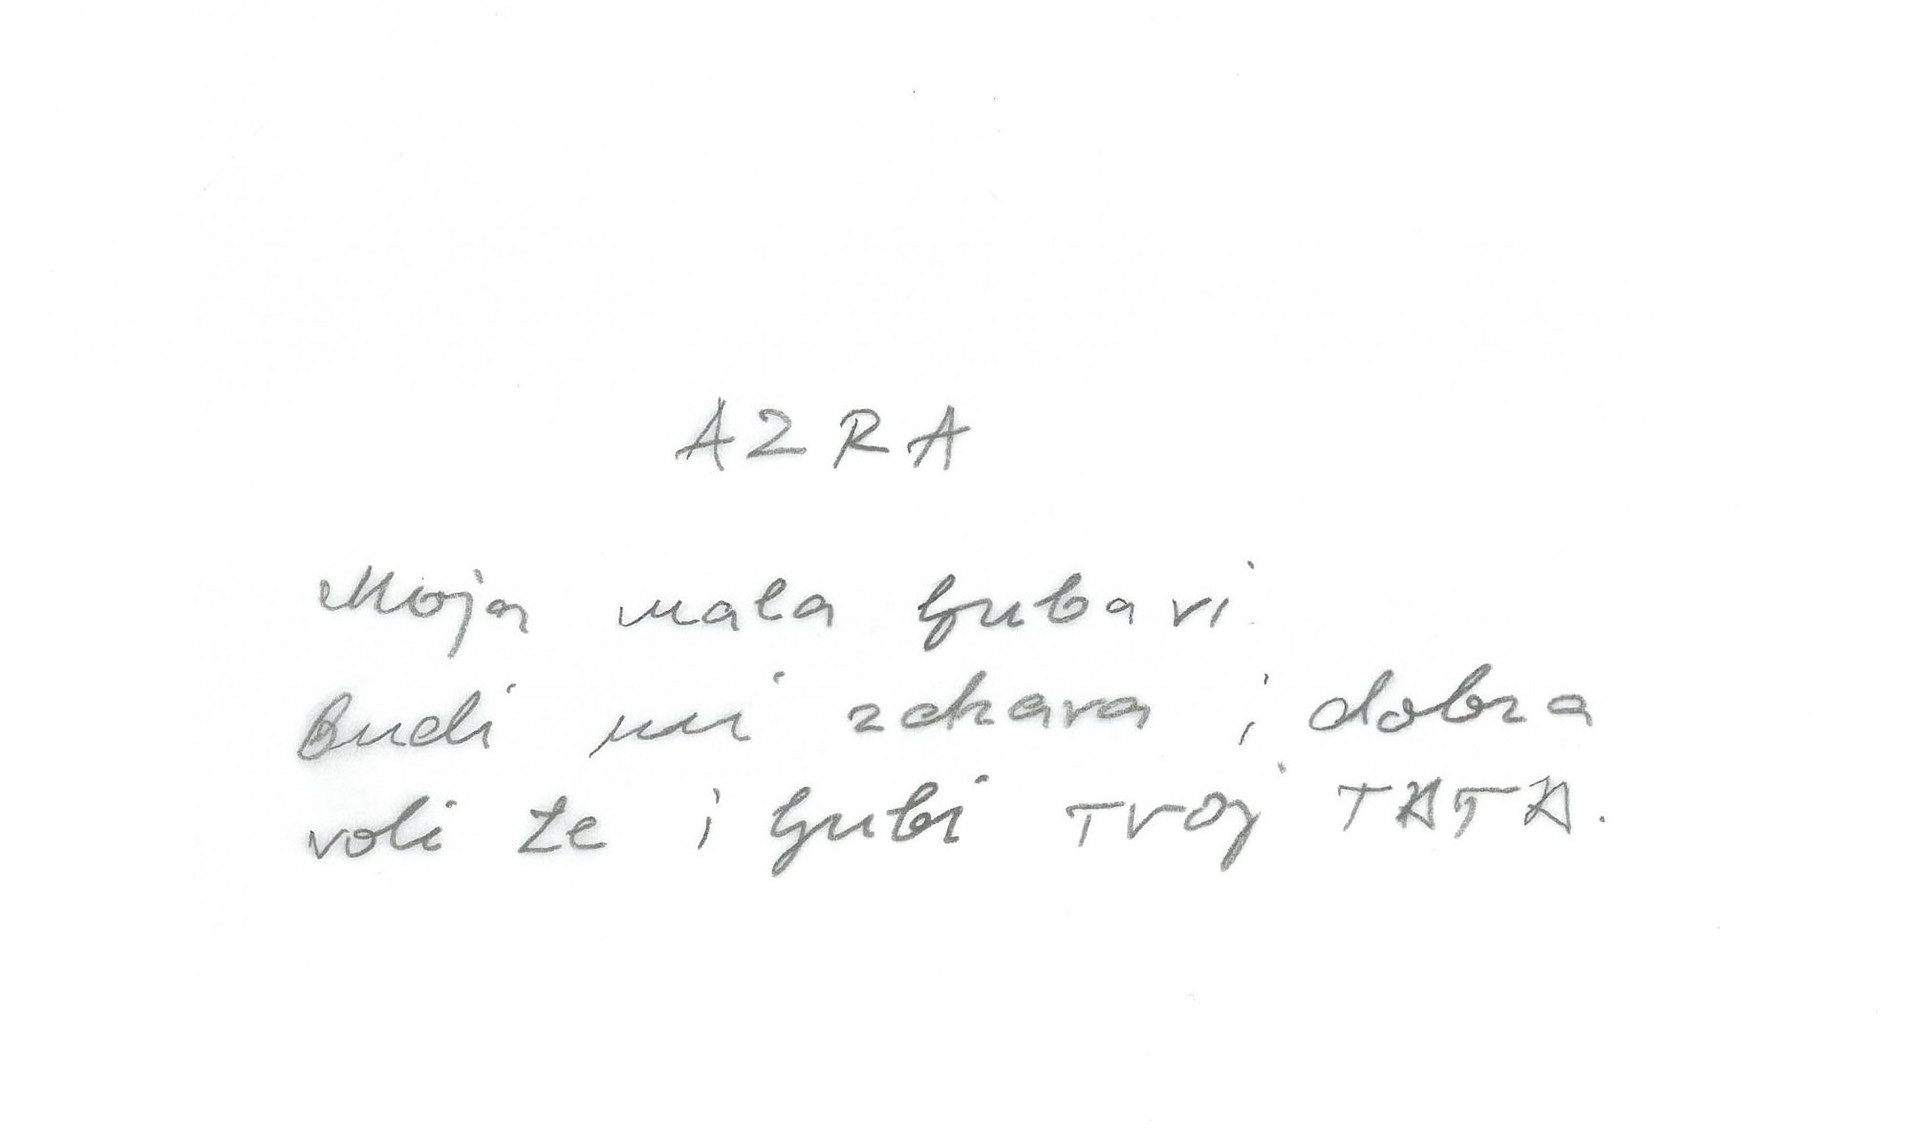 AZRA
Moja mala ljubavi
Budi mi zdrava i dobra
voli te i ljubi tvoj TATA.